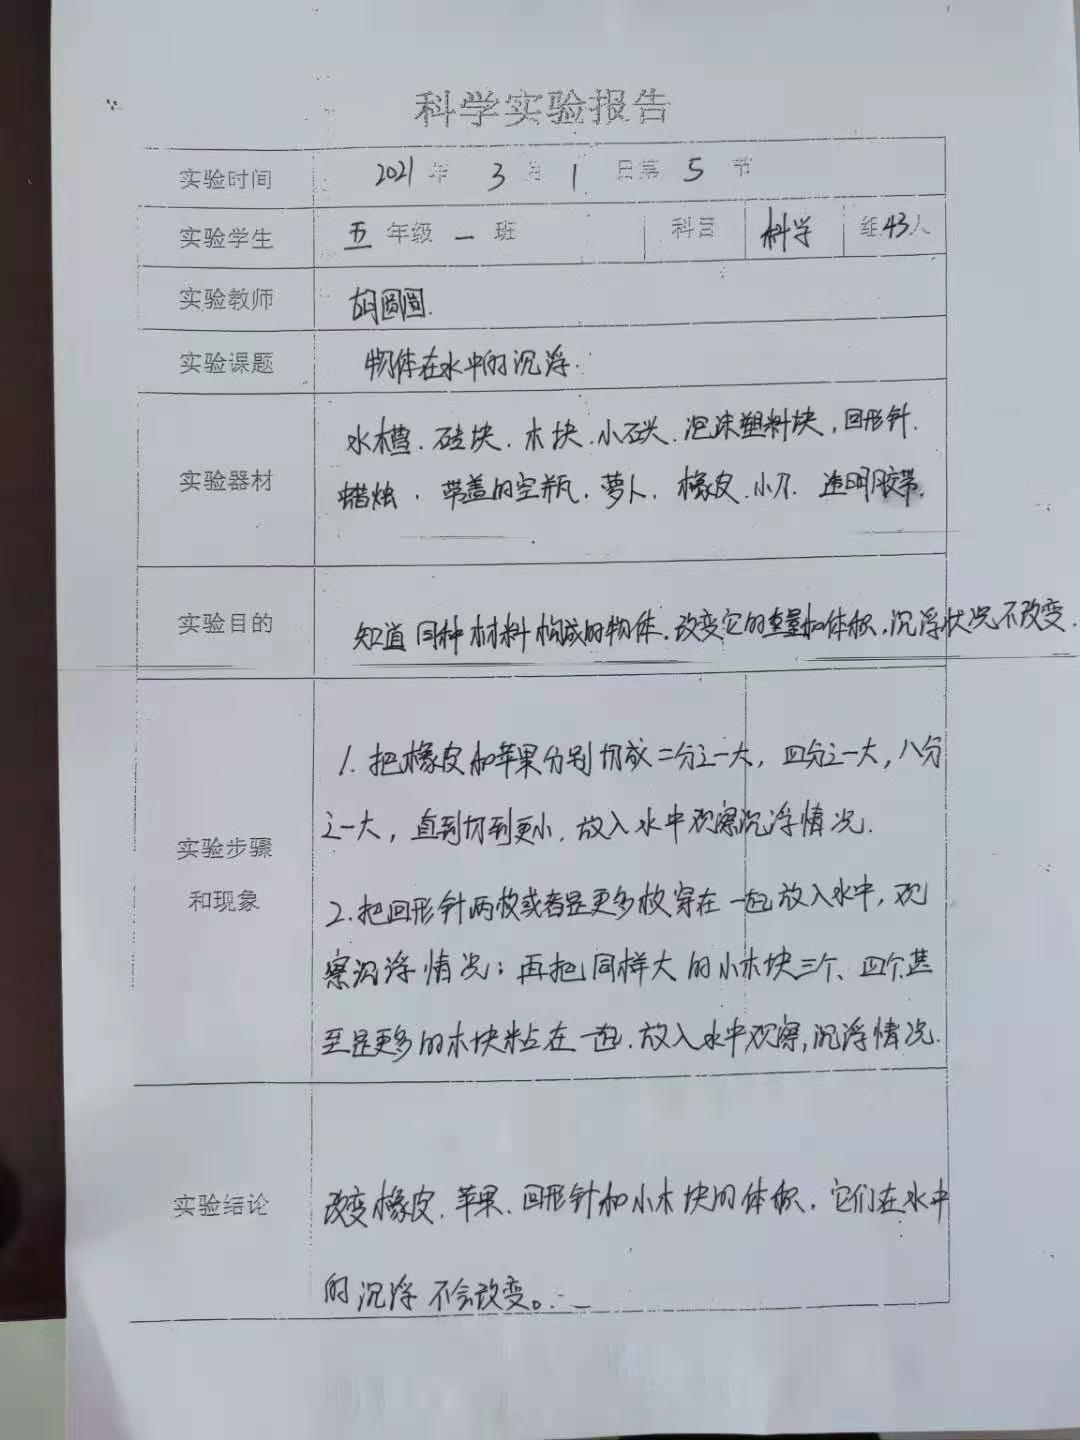 科学实验报告
实验时间 2021 年 3 月 1 日第 5 节
实验学生 五 年级 一 班 科目 科学 组43人
实验教师 胡圆圆.
实验课题 物体在水中的沉浮.
水槽.砖块.木块.小石头.泡沫塑料块,回形针.
实验器材
蜡烛.带盖的空瓶.萝卜.橡皮.小刀.透明胶带.
实验目的 知道同种材料构成的物体.改变它的重量和体积,沉浮状况不改变.
1.把橡皮和苹果分别切成二分之一大,四分之一大,八分
之一大,直到切到更小.放入水中观察沉浮情况.
实验步骤
和现象
2.把回形针两枚或者是更多枚穿在一起放入水中,观
察沉浮情况;再把同样大的小木块三个、四个甚
至是更多的木块粘在一起.放入水中观察,沉浮情况.
实验结论
改变橡皮.苹果.回形针和小木块的体积.它们在水中
的沉浮不会改变。